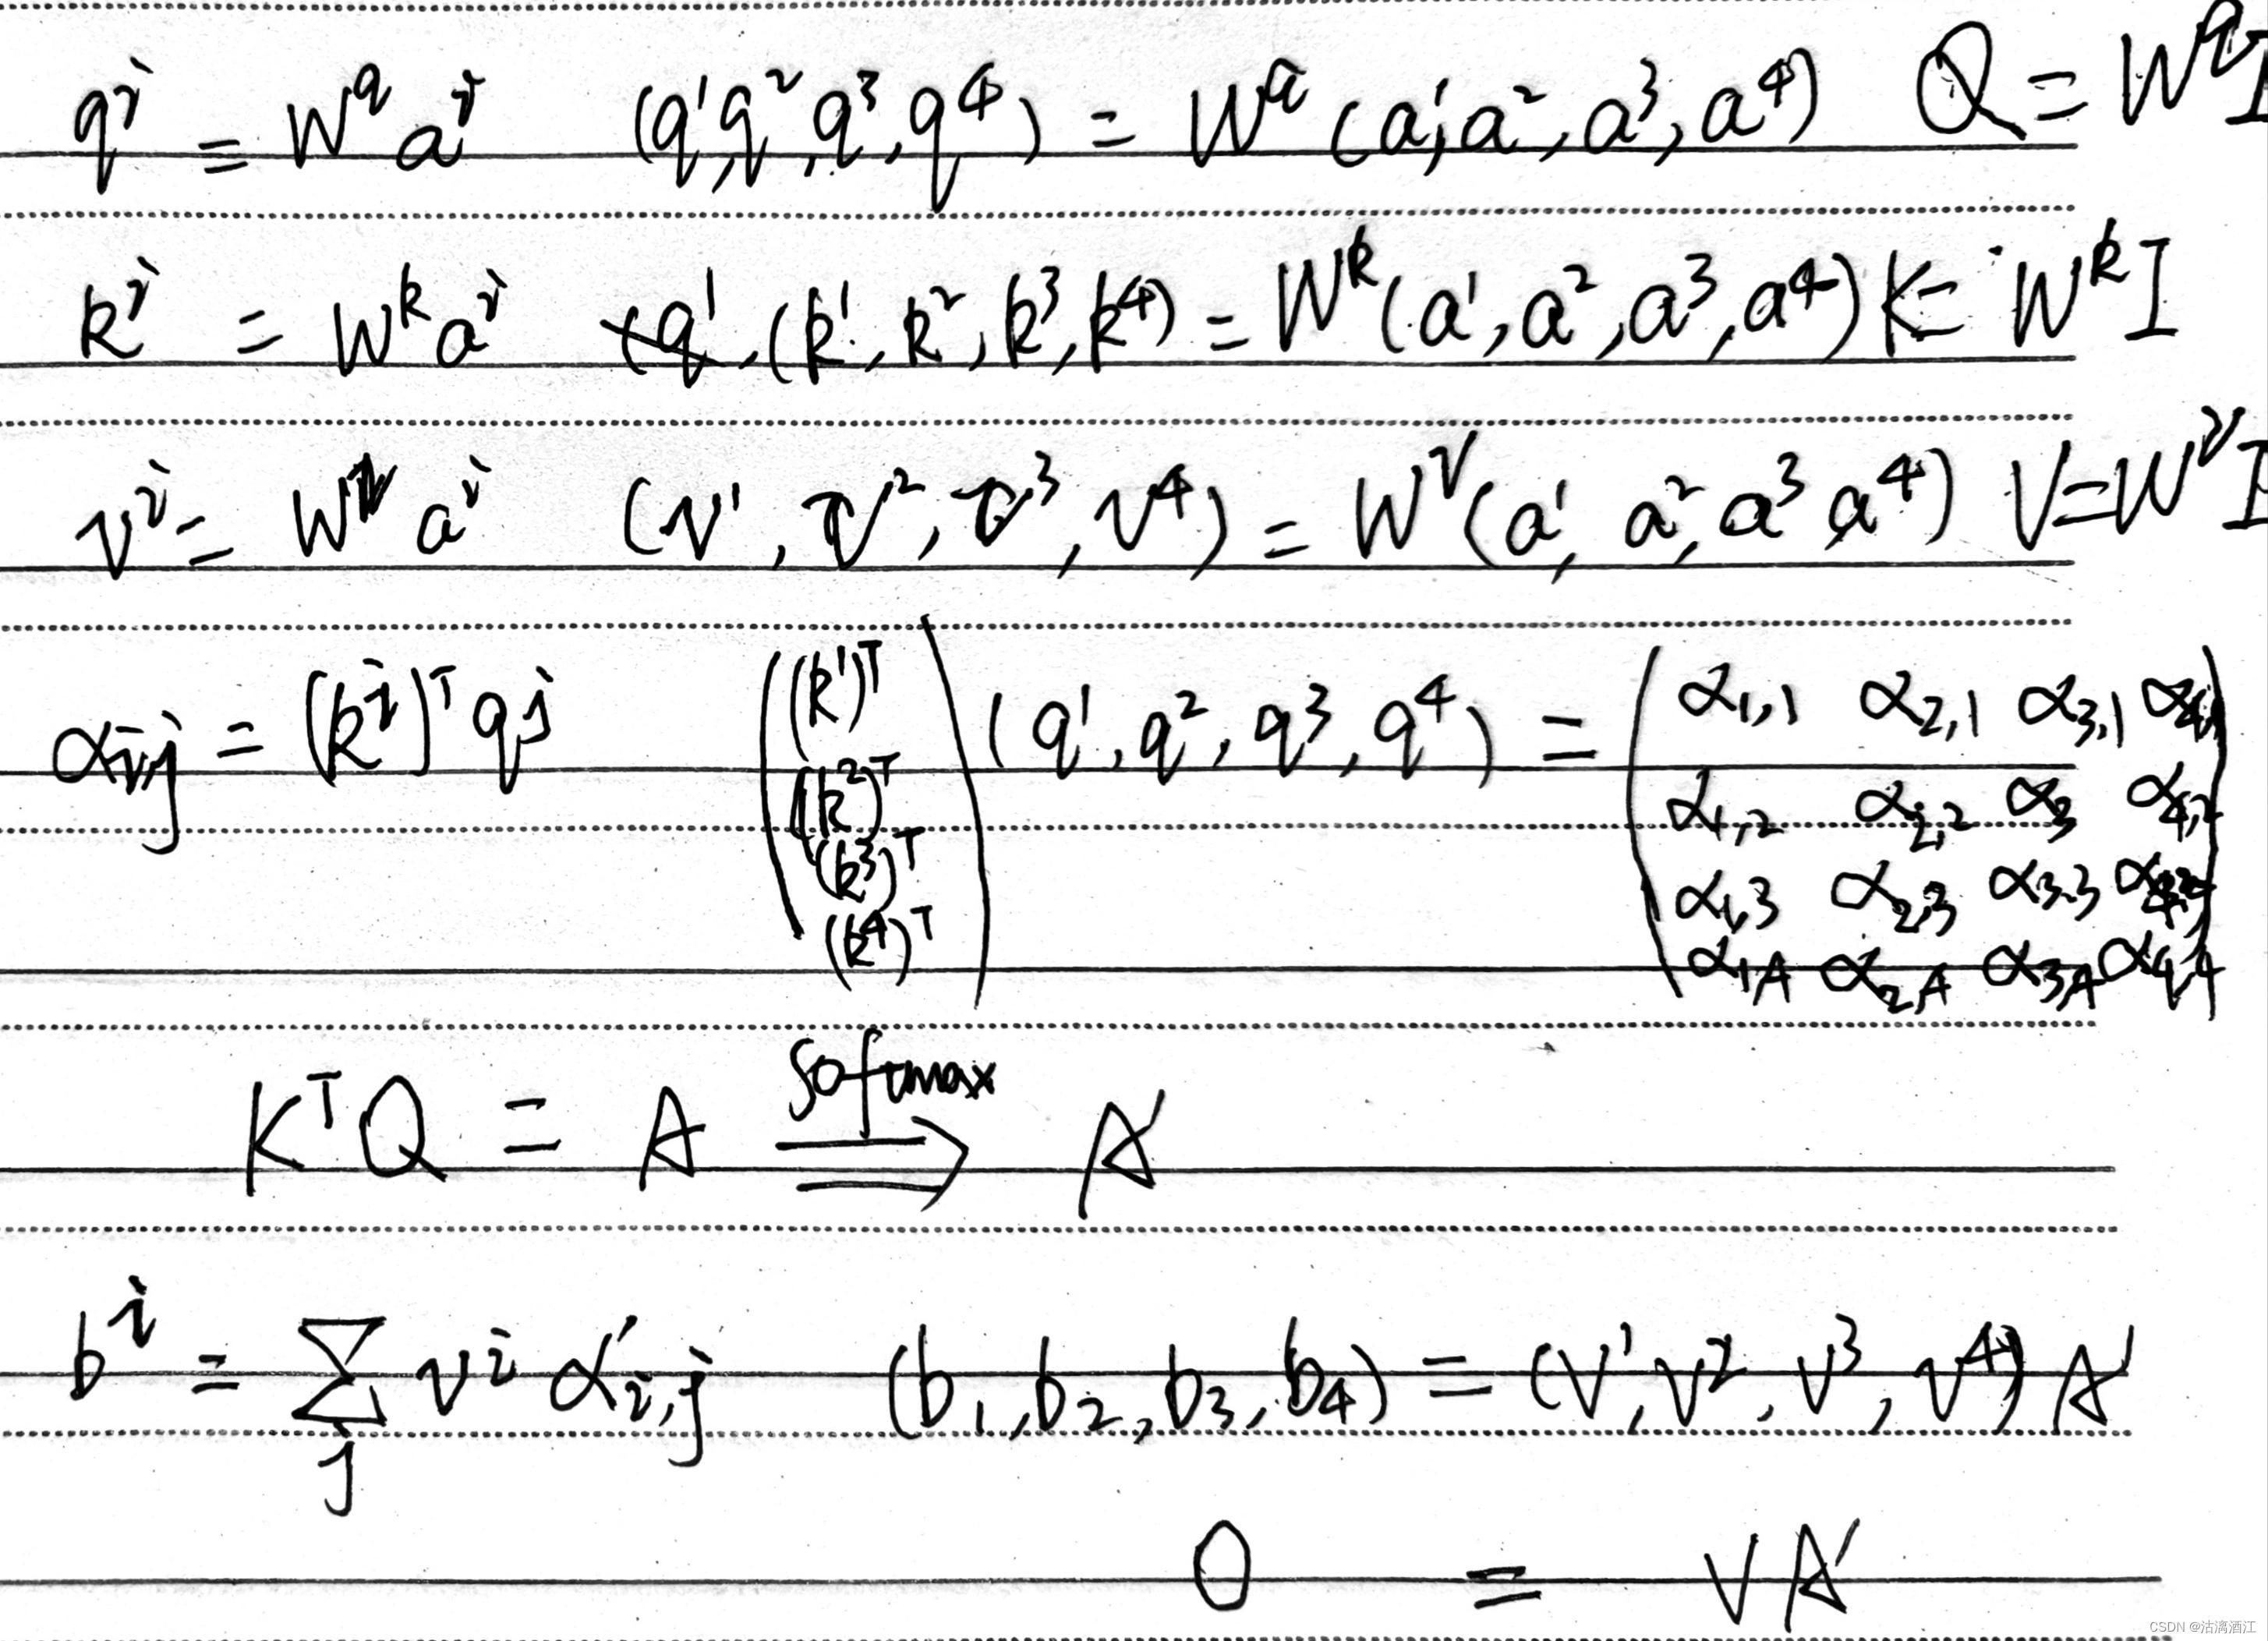 qⁱ = W^q aⁱ (q¹, q², q³, q⁴) = W^q (a¹, a², a³, a⁴) Q = W^q I
kⁱ = W^k aⁱ (k¹, k², k³, k⁴) = W^k (a¹, a², a³, a⁴) K = W^k I
vⁱ = W^v aⁱ (v¹, v², v³, v⁴) = W^v (a¹, a², a³ a⁴) V = W^v I
α_{i,j} = (kⁱ)ᵀ qʲ ((k¹)ᵀ (k²)ᵀ (k³)ᵀ (k⁴)ᵀ) (q¹, q², q³, q⁴) = (α_{1,1} α_{2,1} α_{3,1} α_{4,1}
α_{1,2} α_{2,2} α_3 α_{4,2}
α_{1,3} α_{2,3} α_{3,3} α_{4,3}
α_{1,4} α_{2,4} α_{3,4} α_{4,4})
KᵀQ = A ⟹ A′
Softmax
bⁱ = Σ_j vⁱ α′_{i,j} (b₁, b₂, b₃, b₄) = (v¹, v², v³, v⁴) A′
O = VA′
CSDN @沽漓酒江